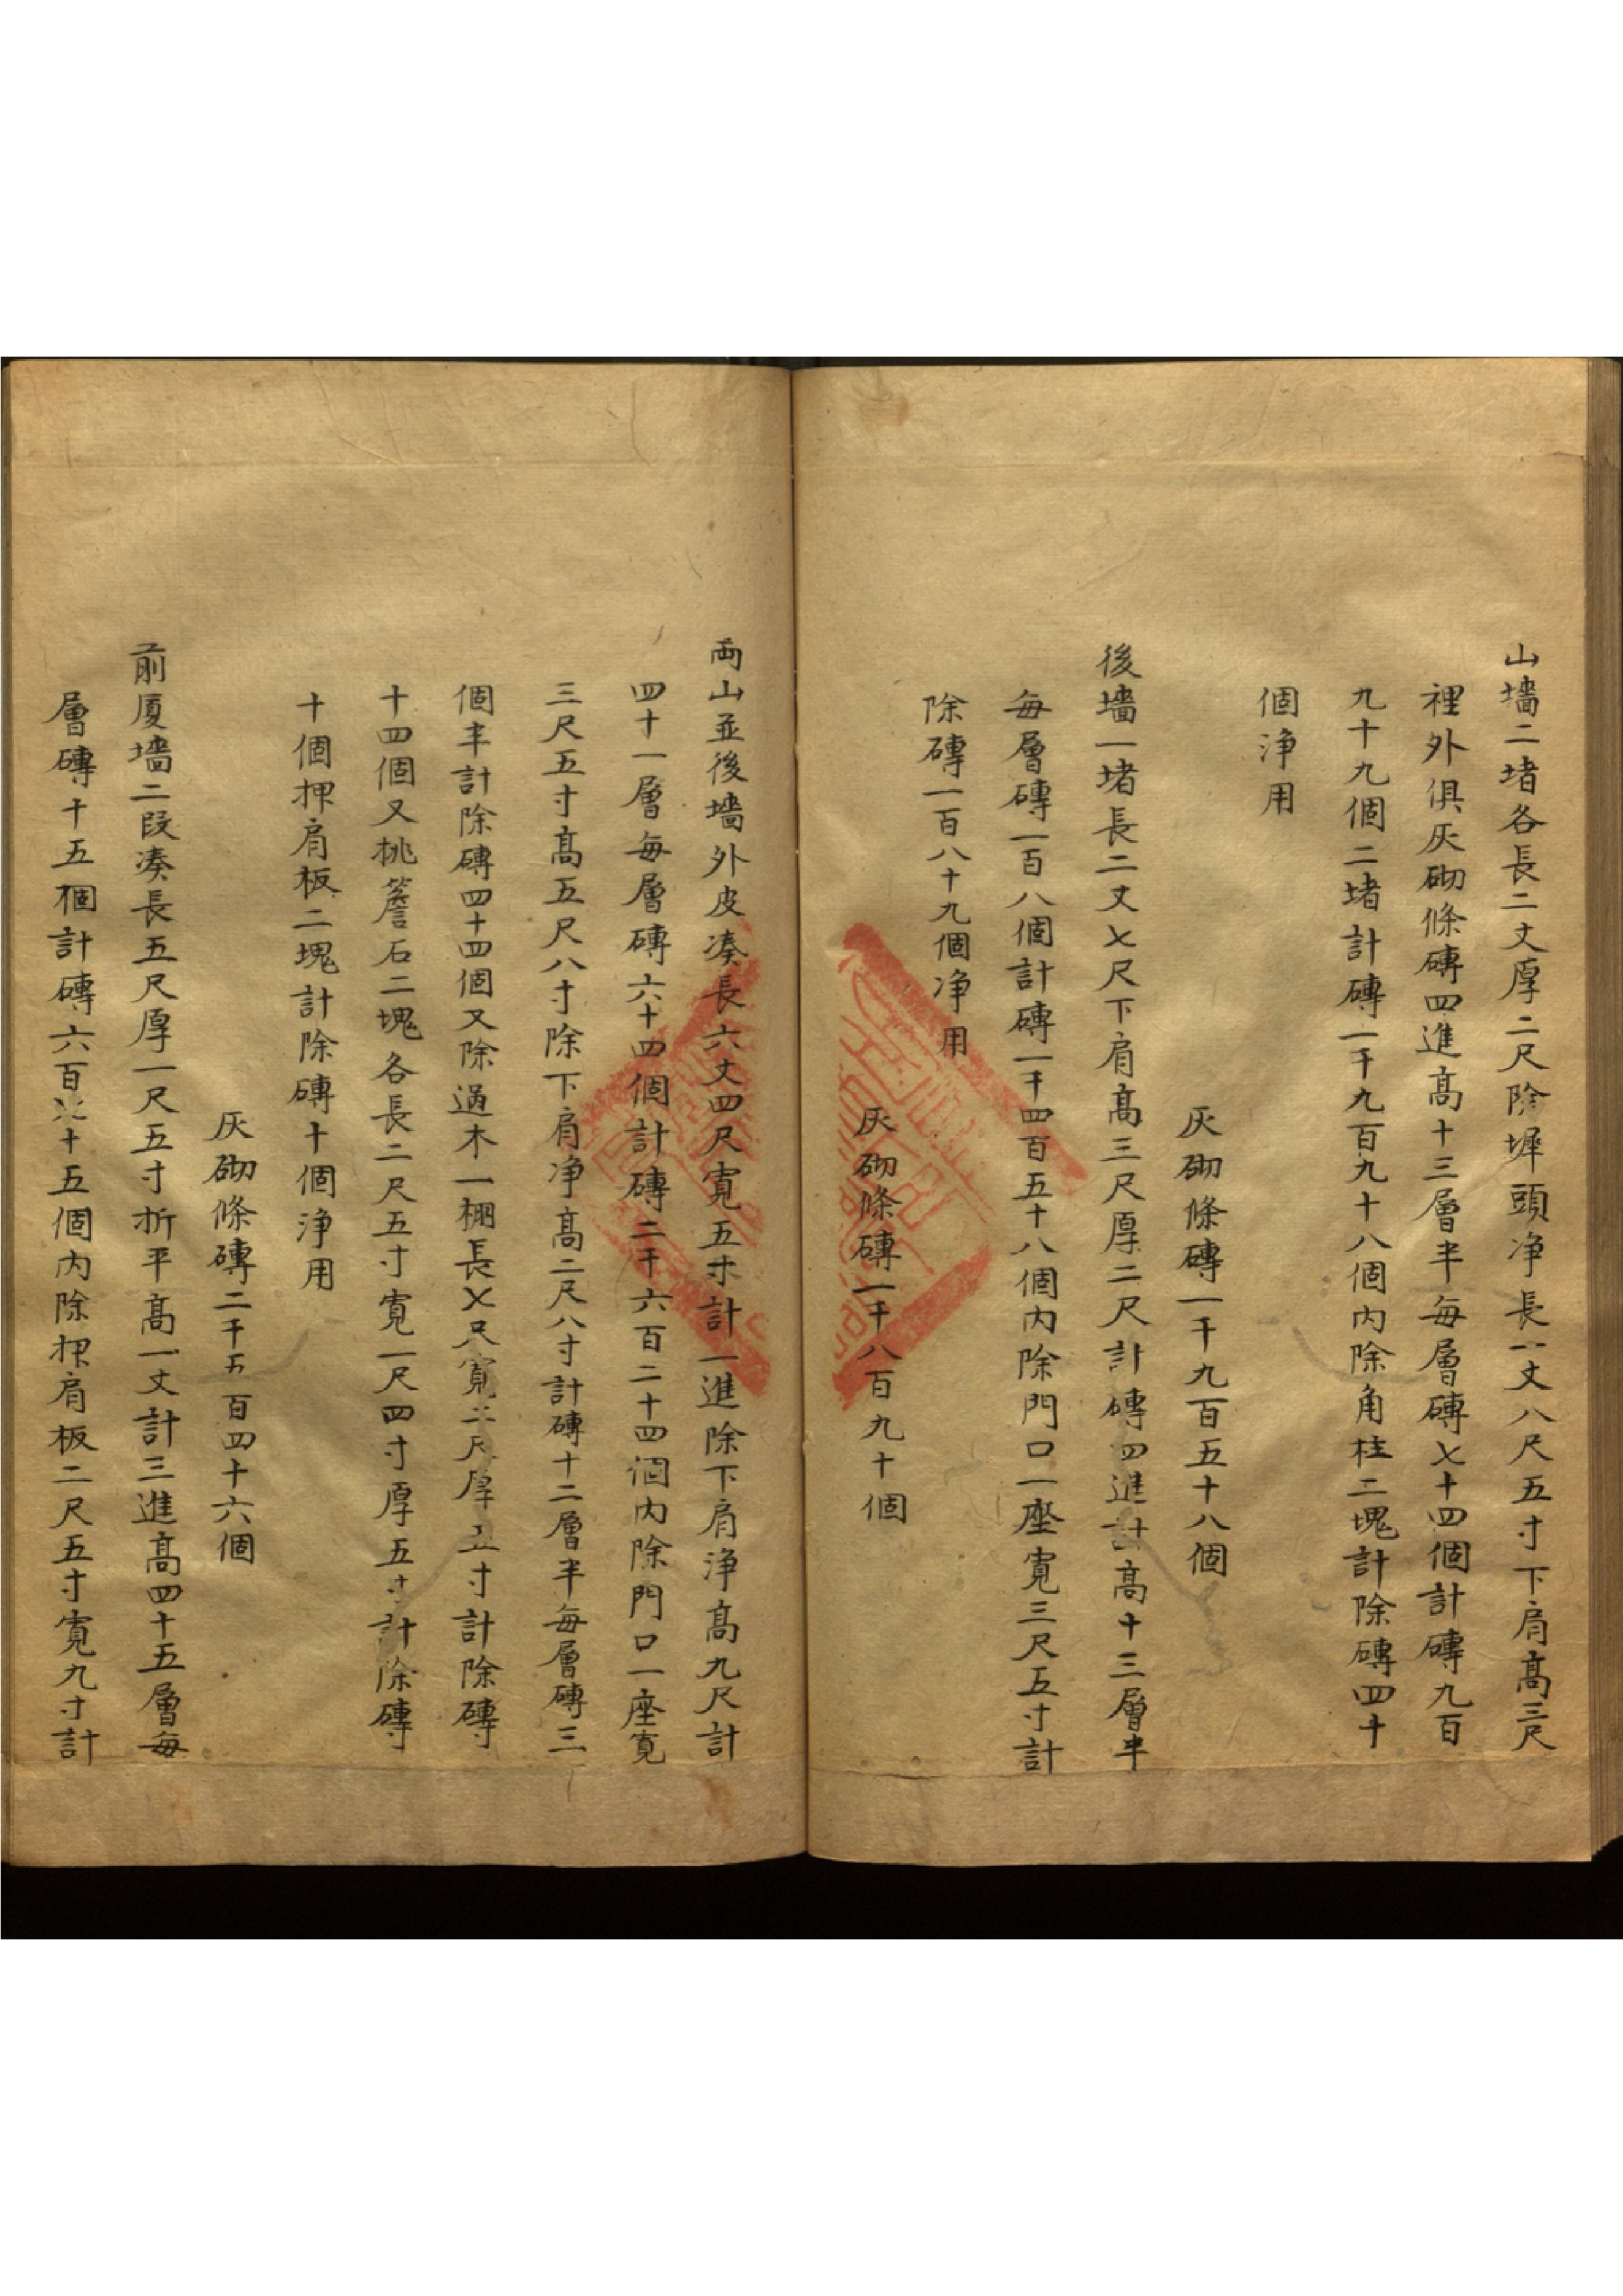 山墻二堵各長二丈厚二尺除墀頭净長一丈八尺五寸下肩髙三尺
裡外俱灰砌條磚四進髙十三層半每層磚七十四個計磚九百
九十九個二堵計磚一千九百九十八個内除角柱二塊計除磚四十
個净用
灰砌條磚一千九百五十八個
後墻一堵長二丈七尺下肩髙三尺厚二尺計磚四進計髙十三層半
每層磚一百八個計磚一千四百五十八個内除門口一座寛三尺五寸計
除磚一百八十九個净用
灰砌條磚一千八百九十個
両山並後墻外皮凑長六丈四尺寛五寸計一進除下肩浄髙九尺計
四十一層每層磚六十四個計磚二千六百二十四個内除門口一座寛
三尺五寸髙五尺八寸除下肩净髙二尺八寸計磚十二層半每層磚三
個半計除磚四十四個又除過木一棚長七尺寛二尺厚五寸計除磚
十四個又挑簷石二塊各長二尺五寸寛一尺四寸厚五寸計除磚
十個押肩板二塊計除磚十個浄用
灰砌條磚二千五百四十六個
前厦墻二段凑長五尺厚一尺五寸折平髙一丈計三進髙四十五層每
層磚十五個計磚六百七十五個内除押肩板二尺五寸寛九寸計